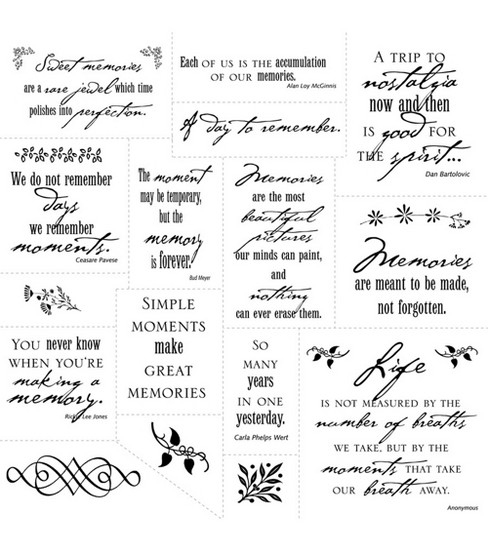 Sweet memories
are a rare jewel which time
polishes into perfection.
Each of us is the accumulation
of our memories.
Alan Loy McGinnis
A day to remember.
A trip to
nostalgia
now and then
is good for
the spirit...
Dan Bartolovic
We do not remember
days
we remember
moments.
Ceasare Pavese
The moment
may be temporary,
but the
memory
is forever.
Bud Meyer
Memories
are the most
beautiful
pictures
our minds can paint,
and
nothing
can ever erase them.
Memories
are meant to be made,
not forgotten.
You never know
when you're
making a
memory.
Rickie Lee Jones
Simple
moments
make
great
memories
So
many
years
in one
yesterday.
Carla Phelps Wert
Life
is not measured by the
number of breaths
we take, but by the
moments that take
our breath away.
Anonymous